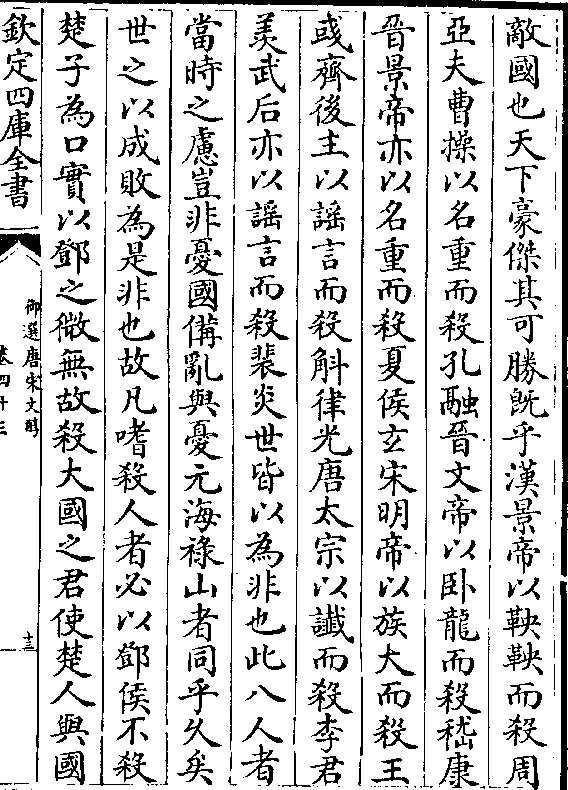 敵國也天下豪傑其可勝旣乎漢景帝以鞅鞅而殺周
亞夫曹操以名重而殺孔融晉文帝以卧龍而殺嵇康
晉景帝亦以名重而殺夏侯玄宋明帝以族大而殺王
彧齊後主以謡言而殺斛律光唐太宗以讖而殺李君
羡武后亦以謡言而殺裴炎世皆以為非也此八人者
當時之慮豈非憂國備亂與憂元海祿山者同乎久矣
世之以成敗為是非也故凡嗜殺人者必以鄧侯不殺
楚子為口實以鄧之微無故殺大國之君使楚人與國
欽定四庫全書
御選唐宋文醇
卷四十三
十三